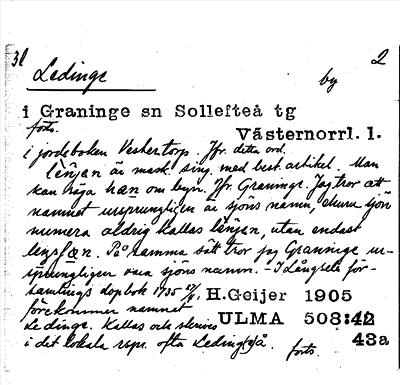 31 2
Ledinge by
i Graninge sn Sollefteå tg
forts. Västernorrl. l.
i jordeboken Vestertorp. Jfr. detta ord.
är mask. sing. med best. artikel. Man
kan säga han om byn. Jfr. Graninge. Jag tror att
namnet ursprungligen är sjöns namn, ehuru sjön
numera aldrig kallas utan endast
På samma sätt tror jag Graninge ur-
sprungligen vara sjöns namn. - I Långsele för-
samlings dopbok 1735 27/11 H.Geijer 1905
förekommer namnet
Ledinge. Kallas och skrives ULMA 508:42
i det lokala repr. ofta Leding(s)å. forts. 43a